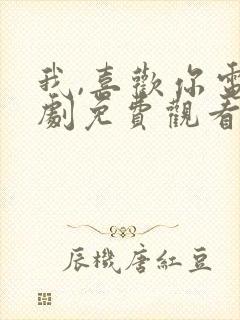 我,喜歡你電
劇免費觀看
辰機唐紅豆